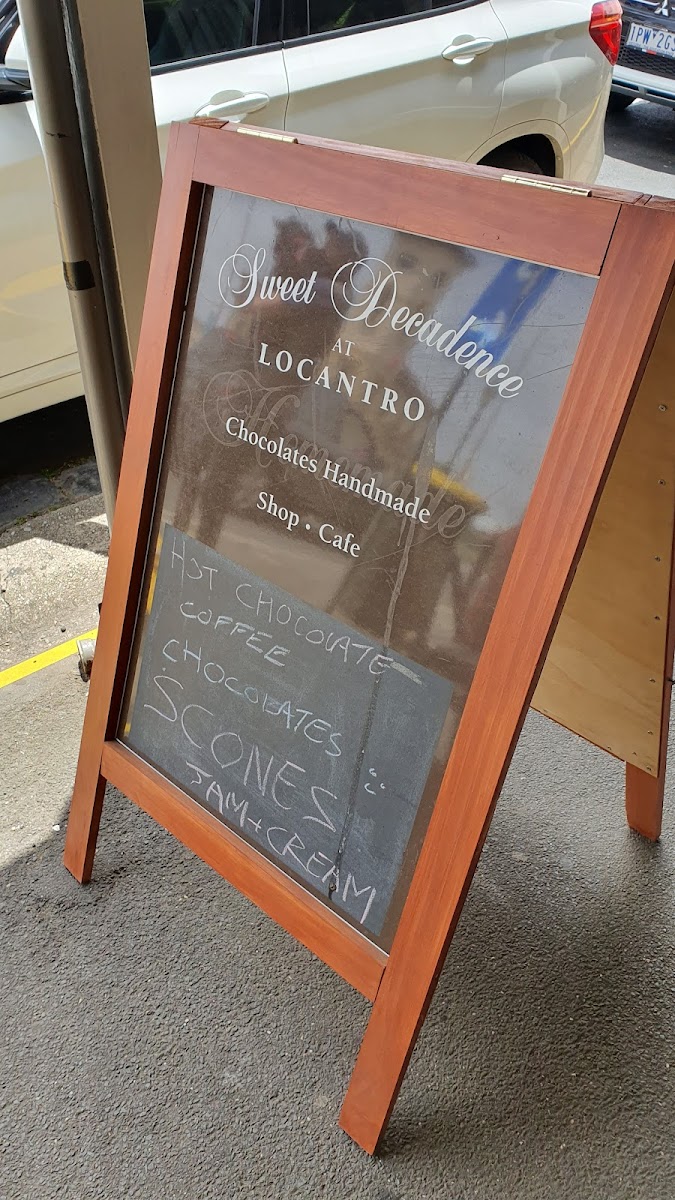 Sweet Decadence
AT
LOCANTRO
Homemade
Chocolates Handmade
Shop • Cafe
HOT CHOCOLATE
COFFEE
CHOCOLATES
SCONES
JAM + CREAM